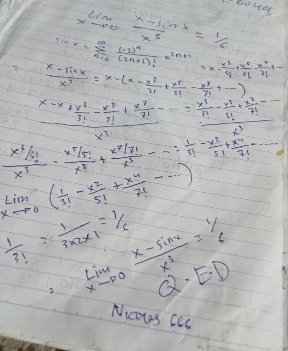 Lim x→0 x - sinx / x³ = 1/6
sinx = ∞ Σ n=0 (-1)ⁿ / (2n+1)! x²ⁿ⁺¹ = x - x³/3! + x⁵/5! - x⁷/7! + ---
= x - sinx / x³ = x - (x - x³/3! + x⁵/5! - x⁷/7! + ---)
x - x + x³/3! - x⁵/5! + x⁷/7! --- / x³ = x³/3! - x⁵/5! + x⁷/7! --- / x³
x³/3! / x³ - x⁵/5! / x³ + x⁷/7! / x³ --- = 1/3! - x²/5! + x⁴/7! ---
Lim x→0 (1/3! - x²/5! + x⁴/7! ---)
1/3! = 1/3x2x1 = 1/6
Lim x→0 x - sinx / x³ = 1/6
Q.E.D
Nicolas 666